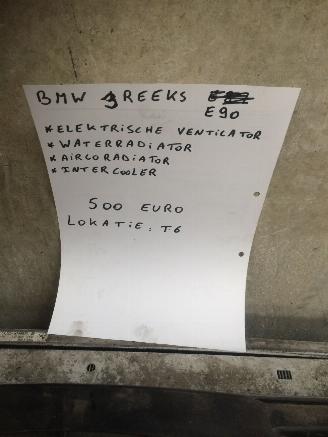 BMW 3 REEKS
E90
* ELEKTRISCHE VENTILATOR
* WATERRADIATOR
* AIRCORADIATOR
* INTERCOOLER
500 EURO
LOKATIE: T6